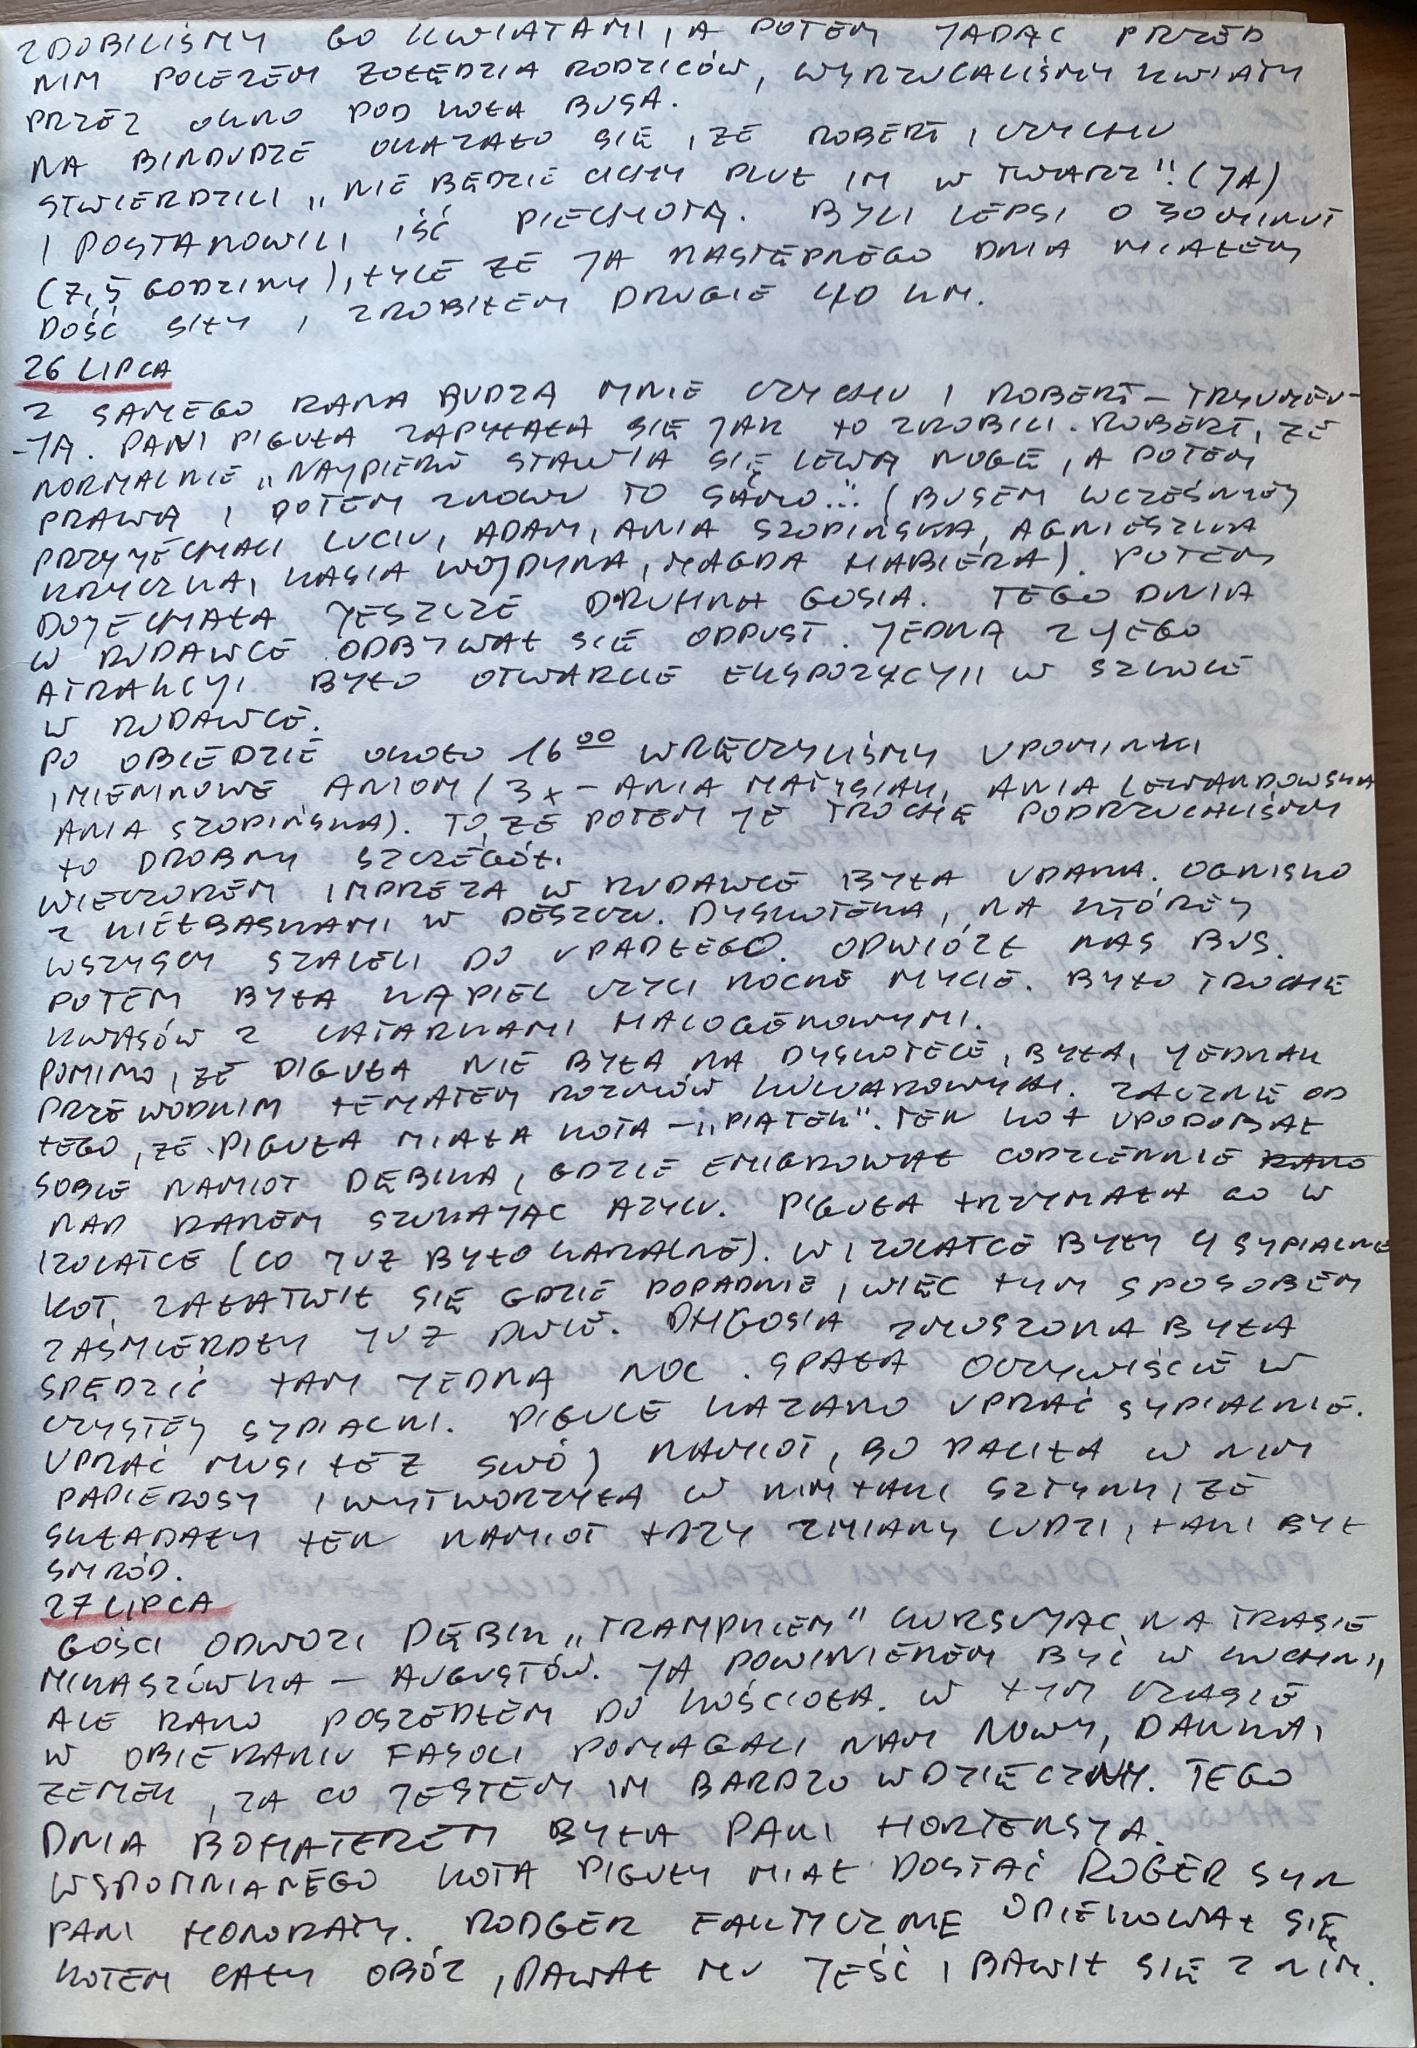 ZDOBILIŚMY GO KWIATAMI, A POTEM JADĄC PRZED
NIM POLEZEM ŻOŁĘDZIA RODZICÓW, WYRZUCALIŚMY KWIATY
PRZEZ OKNO POD KOŁA BUSA.
NA BINDUDZE OKAZAŁO SIĘ, ŻE ROBERT, CZYCHU
STWIERDZILI „NIE BĘDZIE CICHY PLUŁ IM W TWARZ"! (JA)
I POSTANOWILI IŚĆ PIECHOTĄ. BYLI LEPSI O 30 MINUT
(7,5 GODZINY), TYLE ŻE JA NASTĘPNEGO DNIA MIAŁEM
DOŚĆ SIŁY I ZROBIŁEM DRUGIE 40 KM.
26 LIPCA
Z SAMEGO RANA BUDZĄ MNIE CZYCHU I ROBERT – TRYUMFU-
-JĄ. PANI PIGUŁA ZAPYTAŁA SIĘ JAK TO ZROBILI. ROBERT, ŻE
NORMALNIE „NAJPIERW STAWIA SIĘ LEWĄ NOGĘ, A POTEM
PRAWĄ I POTEM ZNOWU TO SAMO..." (BUSEM WCZEŚNIEJ
PRZYJECHALI LUCIU, ADAM, ANIA SZOPIŃSKA, AGNIESZKA
KRYCZKA, KASIA WOJDYNA, MAGDA HABIERA). POTEM
DOJECHAŁA JESZCZE DRUHNA GOSIA. TEGO DNIA
W RUDAWCE ODBYWAŁ SIĘ ODPUST. JEDNĄ Z JEGO
ATRAKCJI BYŁO OTWARCIE EKSPOZYCJI W SZKOLE
W RUDAWCE.
PO OBIEDZIE OKOŁO 16 00 WRĘCZYLIŚMY UPOMINKI
IMIENINOWE ANIOM (3x – ANIA MATYSIAK, ANIA LEWANDOWSKA
ANIA SZOPIŃSKA). TO, ŻE POTEM JE TROCHĘ PODRZUCALIŚMY
TO DROBNY SZCZEGÓŁ.
WIECZOREM IMPREZA W RUDAWCE BYŁA UDANA. OGNISKO
Z KIEŁBASKAMI W DESZCZU. DYSKOTEKA, NA KTÓREJ
WSZYSCY SZALELI DO UPADŁEGO. ODWIÓZŁ NAS BUS.
POTEM BYŁA KĄPIEL CZYLI NOCNE MYCIE. BYŁO TROCHĘ
KWASÓW Z LATARKAMI HALOGENOWYMI.
POMIMO, ŻE PIGUŁA NIE BYŁA NA DYSKOTECE, BYŁA, JEDNAK
PRZEWODNIM TEMATEM ROZMÓW KULUAROWYCH. ZACZNĘ OD
TEGO, ŻE PIGUŁA MIAŁA KOTA – „PIĄTEK". TEN KOT UPODOBAŁ
SOBIE NAMIOT DĘBIKA, GDZIE EMIGROWAŁ CODZIENNIE RANO
NAD RANEM SZUKAJĄC AZYLU. PIGUŁA TRZYMAŁA GO W
IZOLATCE (CO JUŻ BYŁO KARALNE). W IZOLATCE BYŁY 4 SYPIALNIE
KOT ZAŁATWIŁ SIĘ GDZIE POPADNIE, WIĘC TYM SPOSOBEM
ZAŚMIERDŁY JUŻ DWIE. DH GOSIA ZMUSZONA BYŁA
SPĘDZIĆ TAM JEDNĄ NOC. SPAŁA OCZYWIŚCIE W
CZYSTEJ SYPIALNI. PIGULE KAZANO UPRAĆ SYPIALNIE.
UPRAĆ MUSI TEŻ SWÓJ NAMIOT, BO PALIŁA W NIM
PAPIEROSY I WYTWORZYŁA W NIM TAKI SZTYNK, ŻE
SKŁADAŁY TEN NAMIOT TRZY ZMIANY LUDZI, TAKI BYŁ
SMRÓD.
27 LIPCA
GOŚCI ODWOZI DĘBIK „TRAMPKIEM" KURSUJĄC NA TRASIE
MIKASZÓWKA – AUGUSTÓW. JA POWINIENEM BYĆ W KUCHNI,
ALE RANO POSZEDŁEM DO KOŚCIOŁA. W TYM CZASIE
W OBIERANIU FASOLI POMAGALI NAM NOWY, DANKA I
ZEMEK, ZA CO JESTEM IM BARDZO WDZIĘCZNY. TEGO
DNIA BOHATEREM BYŁA PANI HORTENSJA.
WSPOMNIANEGO KOTA PIGUŁY MIAŁ DOSTAĆ ROGER SYN
PANI HONORATY. RODGER FAKTYCZNIE OPIEKOWAŁ SIĘ
KOTEM CAŁY OBÓZ, DAWAŁ MU JEŚĆ I BAWIŁ SIĘ Z NIM.